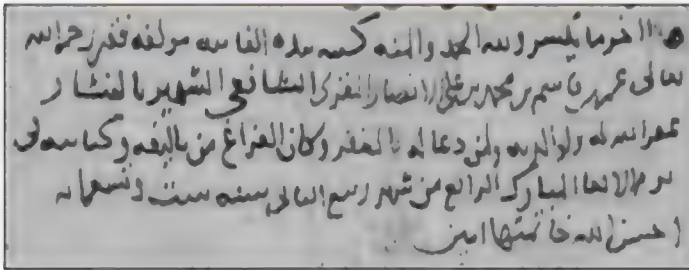 هذا اخر ما تيسر ولله الحمد والمنه كتبه بيده الفانيه مولفه فقير رحمة الله
تعالى عمر بن قاسم بن محمد بن علي الانصاري المقري الشافعي الشهير بالنشار
غفر الله له ولوالديه ولمن دعا له بالمغفره وكان الفراغ من تاليفه وكتابته في
يوم الاربعا المبارك الرابع من شهر ربيع الثاني سنه ست وتسعمايه
احسن الله خاتمتها امين